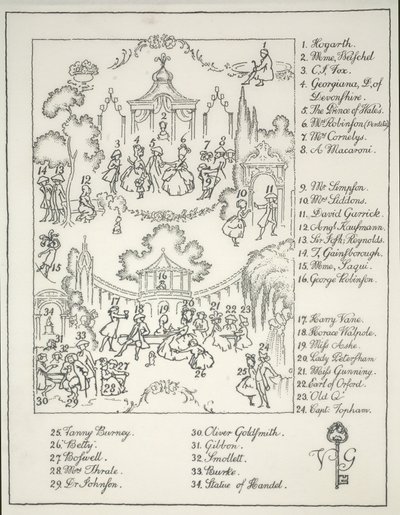 1. Hogarth.
2. Mme, Baschel
3. C.J. Fox.
4. Georgiana, D, of
Devonshire.
5. The Prince of Wales.
6. Mrs Robinson (Perdita)
7. Mrs Cornelys.
8. A Macaroni.
9. Mr Simpson.
10. Mrs Siddons.
11. David Garrick.
12. Angl Kaufmann.
13. Sir Josh: Reynolds.
14. T, Gainsborough.
15. Mme, Saqui.
16. George Robinson.
17. Harry Vane.
18. Horace Walpole.
19. Miss Ashe.
20. Lady Petersham
21. Miss Gunning.
22. Earl of Orford.
23. Old Q
24. Capt: Topham.
25. Fanny Burney.
26. Betty.
27. Boswell.
28. Mrs Thrale.
29. Dr Johnson.
30. Oliver Goldsmith.
31. Gibbon.
32. Smollett.
33. Burke.
34. Statue of Handel.
V G